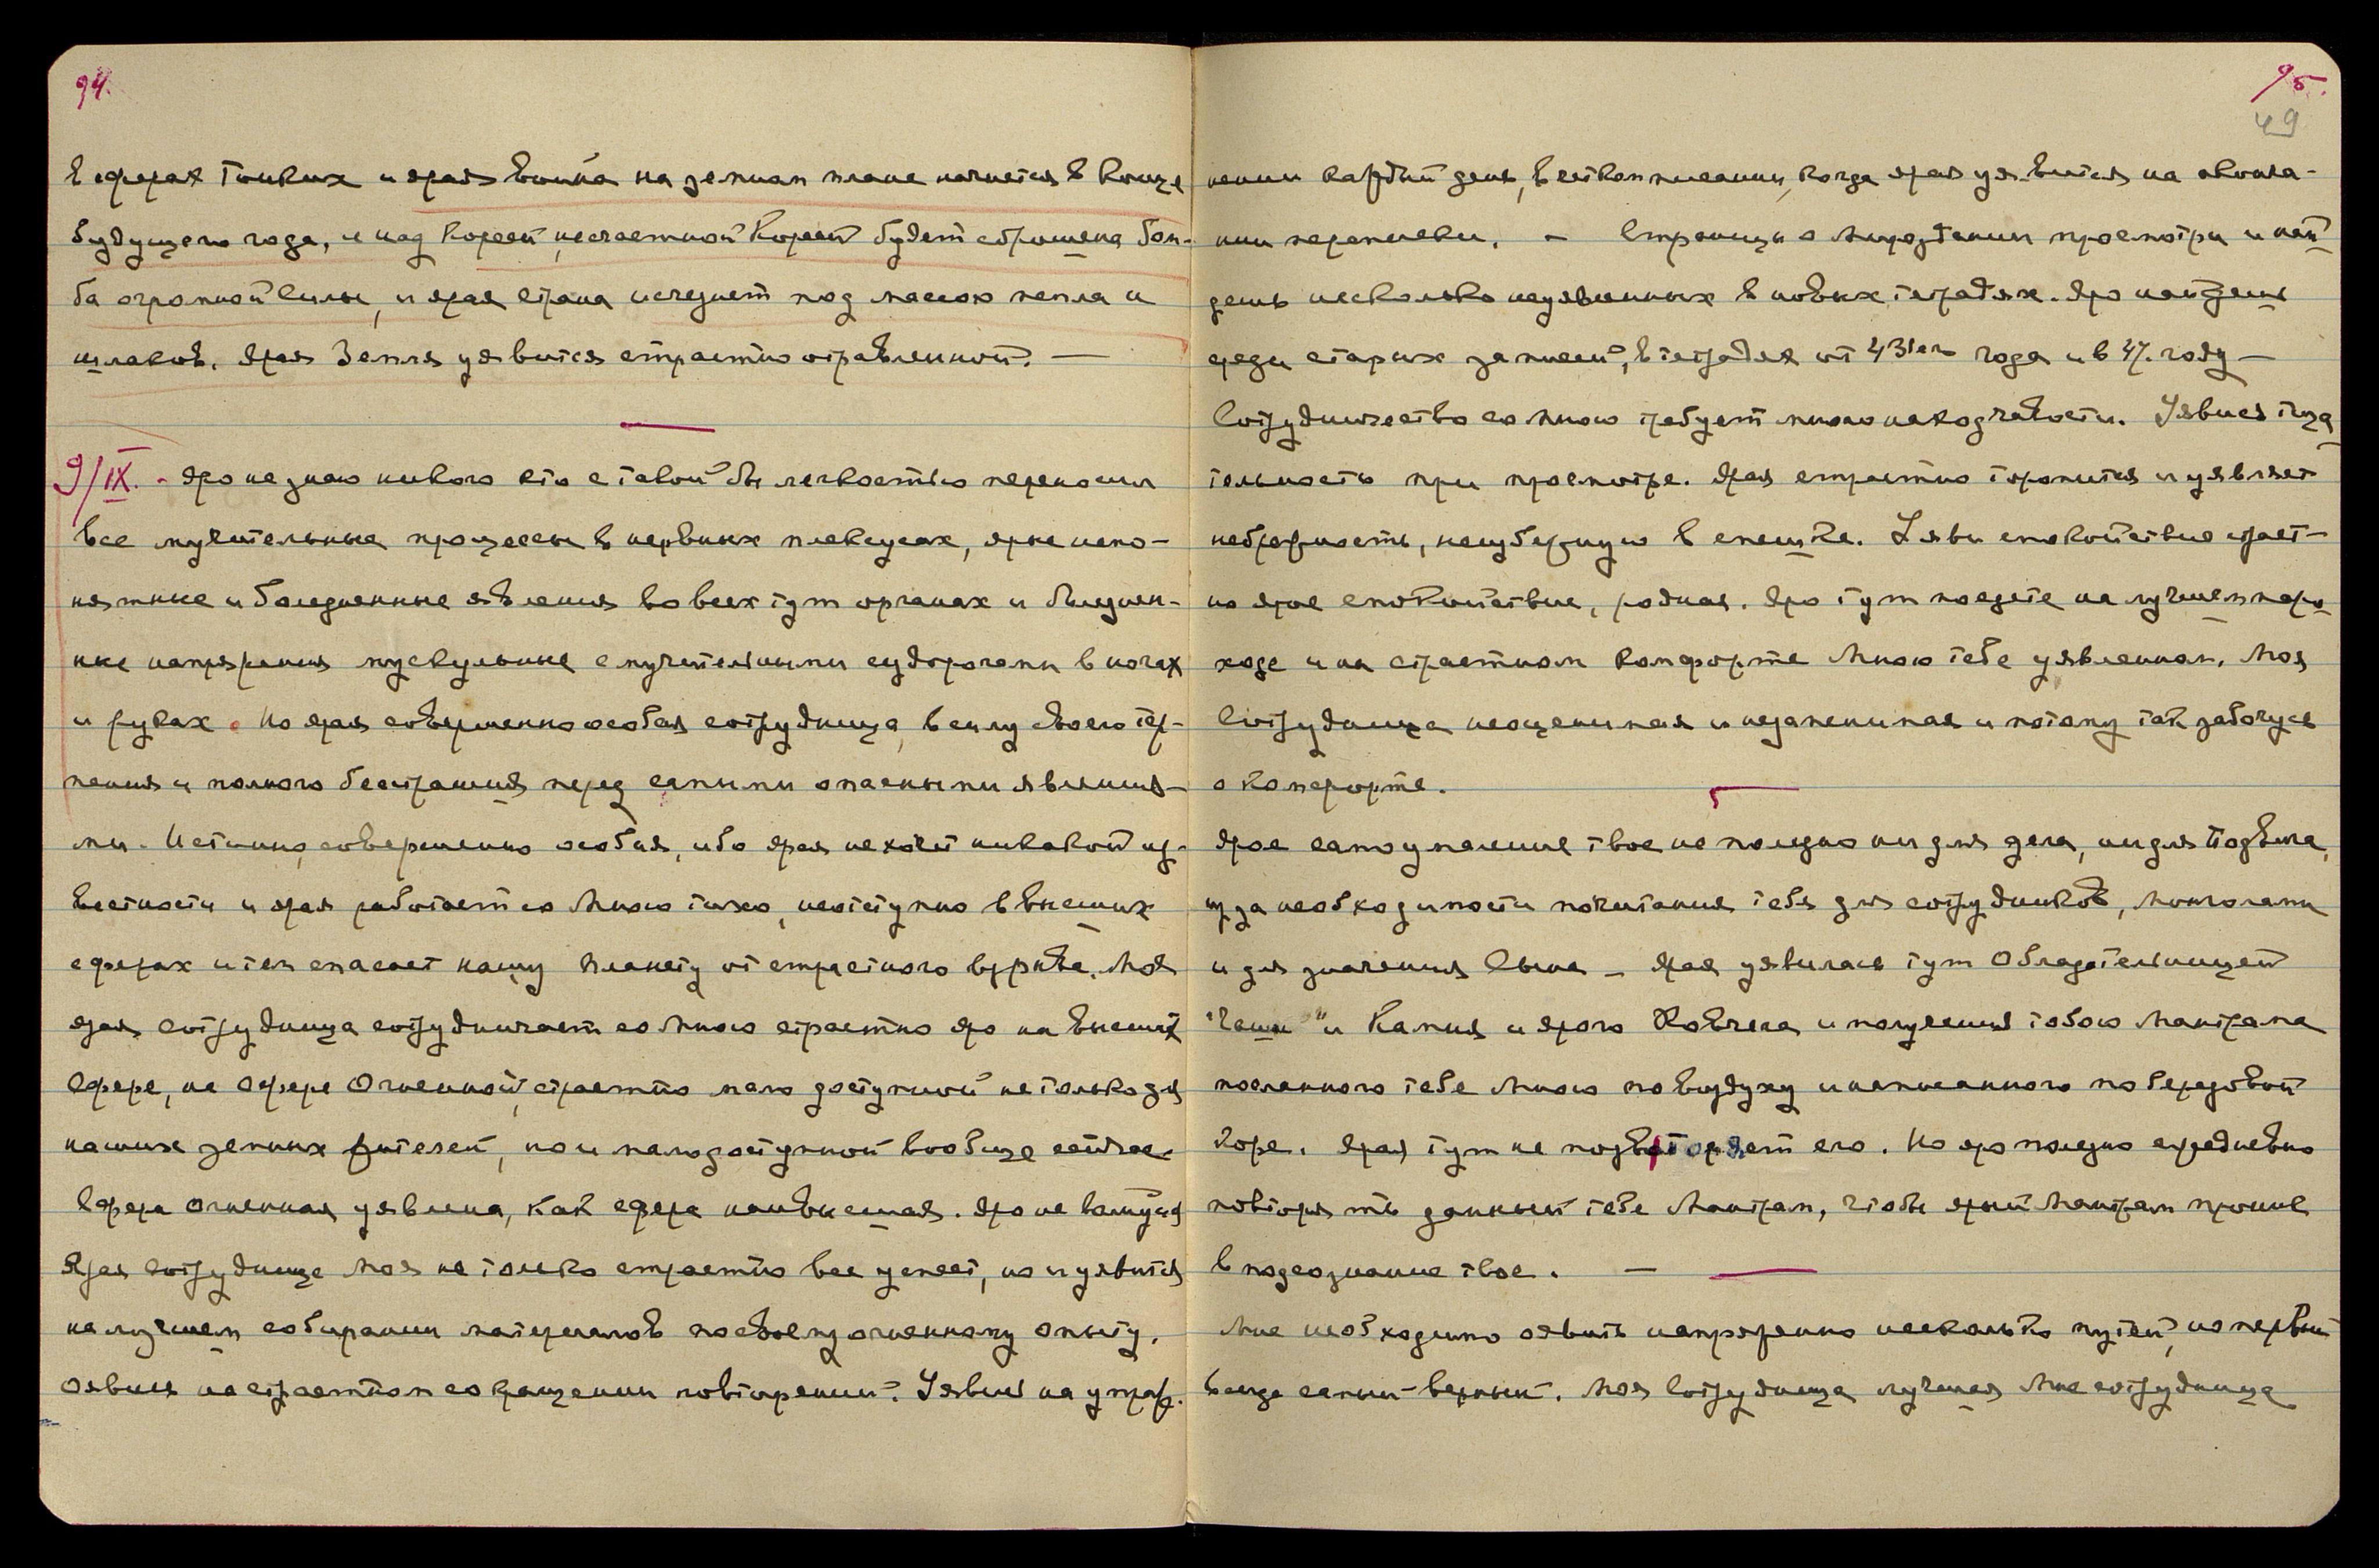 94.
в сферах Тонких и ярая война на земном плане начнется в конце
будущего года, и над Кореей, несчастной Кореей будет сброшена бом-
ба огромной силы, и ярая страна исчезнет под массою пепла и
шлаков. Ярая Земля уявится страстно отравленной. —
9/IX. - Яро не знаю никого кто с такой бы легкостью переносил
все мучительные процессы в нервных плексусах, ярые непо-
нятные и болезненные явления во всех тут органах и болезнен-
ные напряжения мускульные с мучительными судорогами в ногах
и руках. Но ярая совершенно особая сотрудница, в силу своего тер-
пения и полного бесстрашия перед самыми опасными явления-
ми. Истинно, совершенно особая, ибо ярая не хочет никакой из-
вестности и ярая работает со Мною тихо, неотступно в высших
сферах и тем спасает нашу планету от страстного взрыва. Моя
ярая сотрудница сотрудничает со Мною страстно яро на высшей
Сфере, на Сфере Огненной, страстно мало доступной не только для
наших земных жителей, но и малодоступной вообще сейчас.
Сфера Огненная уявлена, как сфера наивысшая. Яро не волнуйся
Ярая сотрудница Моя не только страстно все успеет, но и уявится
на лучшем собирании материалов по своему огненному опыту.
Оявись на страстном сокращении повторений. Уявись на упраж-
95.
49
нении каждый день, в ясном писании, когда ярая уявится на оконча-
нии переписки. — Страницы о Мироздании просмотри и най-
дешь несколько неуявленных в новых тетрадях. Яро найдешь
среди старых записей, в тетрадях от 43его года и в 47. году —
Сотрудничество со Мною требует много находчивости. Уявись тща-
тельность при просмотре. Ярая страстно торопится и уявляет
небрежность, неизбежную в спешке. Уяви спокойствие страст-
но ярое спокойствие, родная. Яро тут поедете на лучшем паро-
ходе и на страстном комфорте Мною тебе уявленном. Моя
Сотрудница неоценимая и незаменимая и потому так забочусь
о комфорте.
Ярое самоумаление твое не полезно ни для дела, ни для Подвига,
из за необходимости почитания тебя для сотрудников, Монголами
и для значения Сына — Ярая уявилась тут Обладательницей
"Чаши" и Камня и ярого Ковчега и получения тобою Мантрама
посланного тебе Мною по воздуху и написанного по березовой
коре. Ярая тут не повторяет его. Но яро полезно ежедневно
повторять данный тебе Мантрам, чтобы ярый Мантрам проник
в подсознание твое. —
Мне необходимо оявить напряженно несколько путей, но первый
всегда самый верный. Моя Сотрудница лучшая Мне сотрудница